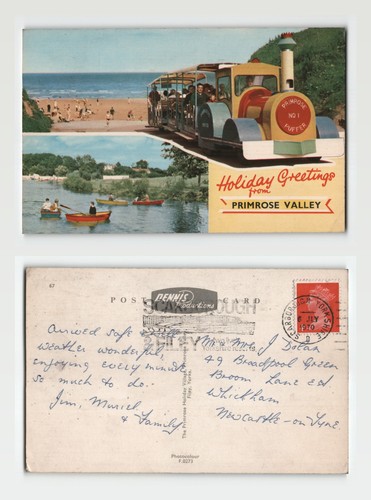 PRIMROSE
No 1
PUFFER
Holiday Greetings
from
PRIMROSE VALLEY
67
POST CARD
DENNIS
SCARBOROUGH
SCARBOROUGH YORKSHIRE
JLY
1970
Arrived safe
weather wonderful,
enjoying every minute
so much to do.
Jim, Muriel
& Family
Mr & Mrs J
49 Broadpool Green
Broom Lane Est
Whickham
Newcastle-on-Tyne
The Primrose Holiday Village
Filey, Yorks.
Photocolour
F.0273